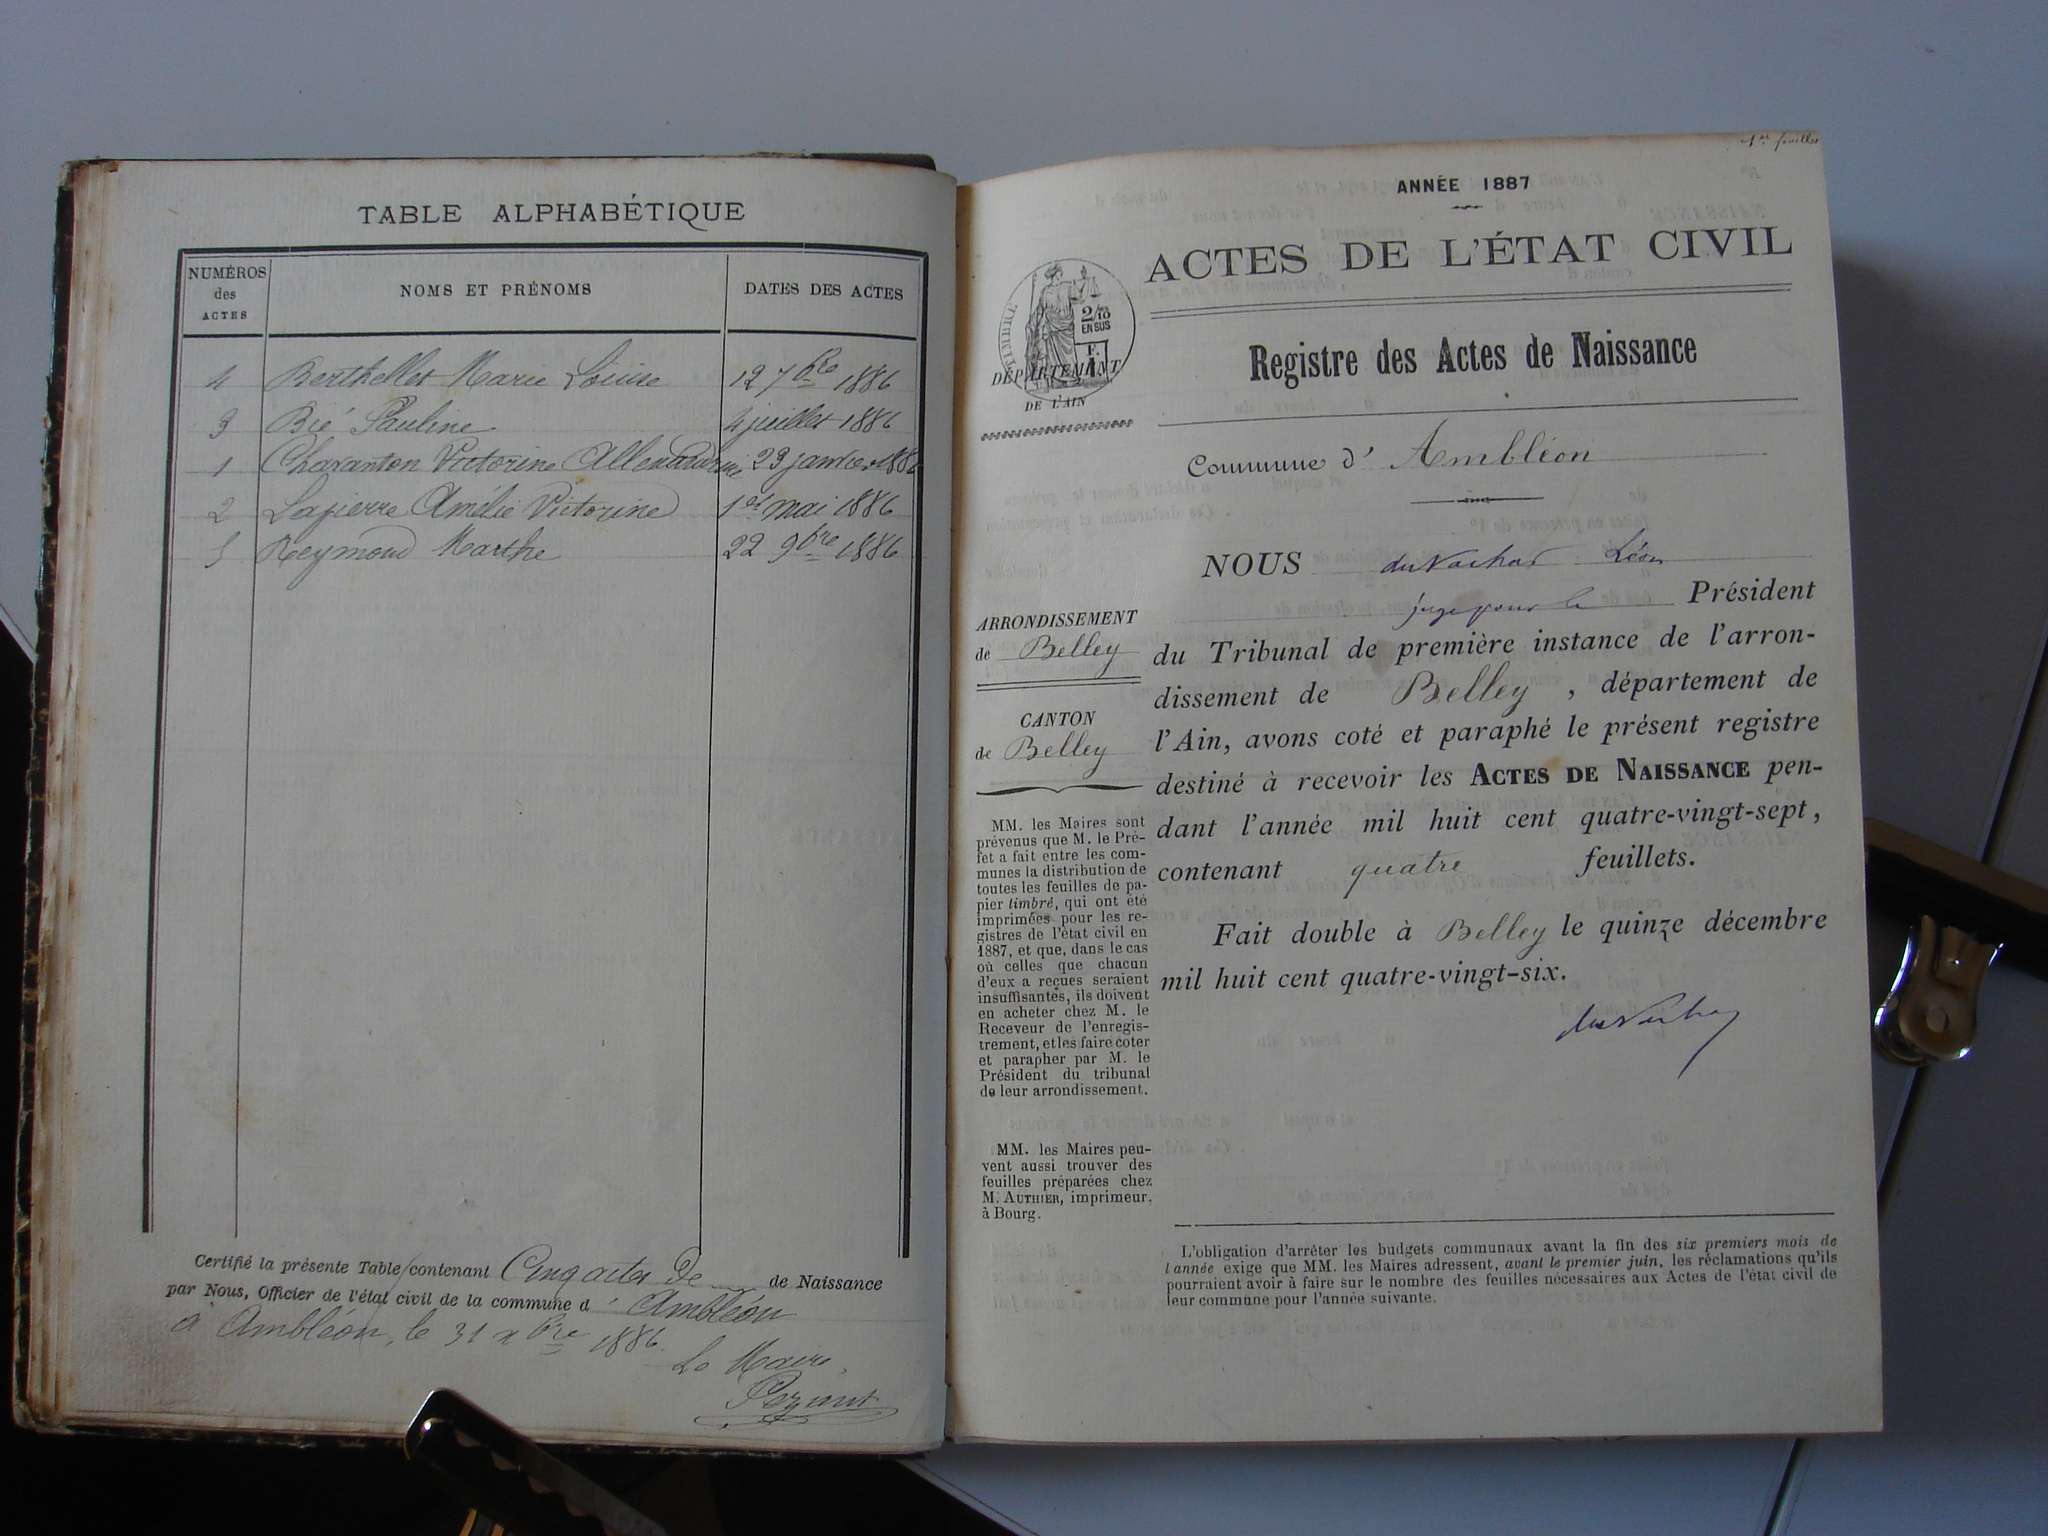 TABLE ALPHABÉTIQUE
NUMÉROS des ACTES
NOMS ET PRÉNOMS
DATES DES ACTES
4 Berthellet Marie Louise 12 7bre 1886
3 Bié Pauline 4 juillet 1886
1 Charanton Victorine Allexandrine 29 janvier 1886
2 Lapierre Amélie Victorine 1er mai 1886
5 Reymond Marthe 22 9bre 1886
Certifié la présente Table contenant Cinq actes De de Naissance
par Nous, Officier de l'état civil de la commune d' Ambléon
à Ambléon, le 31 xbre 1886
Le Maire,
1er feuillet
ANNÉE 1887
ACTES DE L'ÉTAT CIVIL
TIMBRE
2/10
EN SUS
F.
1
DÉPARTEMENT
DE L'AIN
Registre des Actes de Naissance
Commune d' Ambléon
NOUS Léon
juge pour le Président
du Tribunal de première instance de l'arron-
dissement de Belley, département de
l'Ain, avons coté et paraphé le présent registre
destiné à recevoir les ACTES DE NAISSANCE pen-
dant l'année mil huit cent quatre-vingt-sept,
contenant quatre feuillets.
Fait double à Belley le quinze décembre
mil huit cent quatre-vingt-six.
ARRONDISSEMENT
de Belley
CANTON
de Belley
MM. les Maires sont
prévenus que M. le Pré-
fet a fait entre les com-
munes la distribution de
toutes les feuilles de pa-
pier timbré, qui ont été
imprimées pour les re-
gistres de l'état civil en
1887, et que, dans le cas
où celles que chacun
d'eux a reçues seraient
insuffisantes, ils doivent
en acheter chez M. le
Receveur de l'enregis-
trement, et les faire coter
et parapher par M. le
Président du tribunal
de leur arrondissement.
MM. les Maires peu-
vent aussi trouver des
feuilles préparées chez
M. AUTHIER, imprimeur,
à Bourg.
L'obligation d'arrêter les budgets communaux avant la fin des six premiers mois de
l'année exige que MM. les Maires adressent, avant le premier juin, les réclamations qu'ils
pourraient avoir à faire sur le nombre des feuilles nécessaires aux Actes de l'état civil de
leur commune pour l'année suivante.